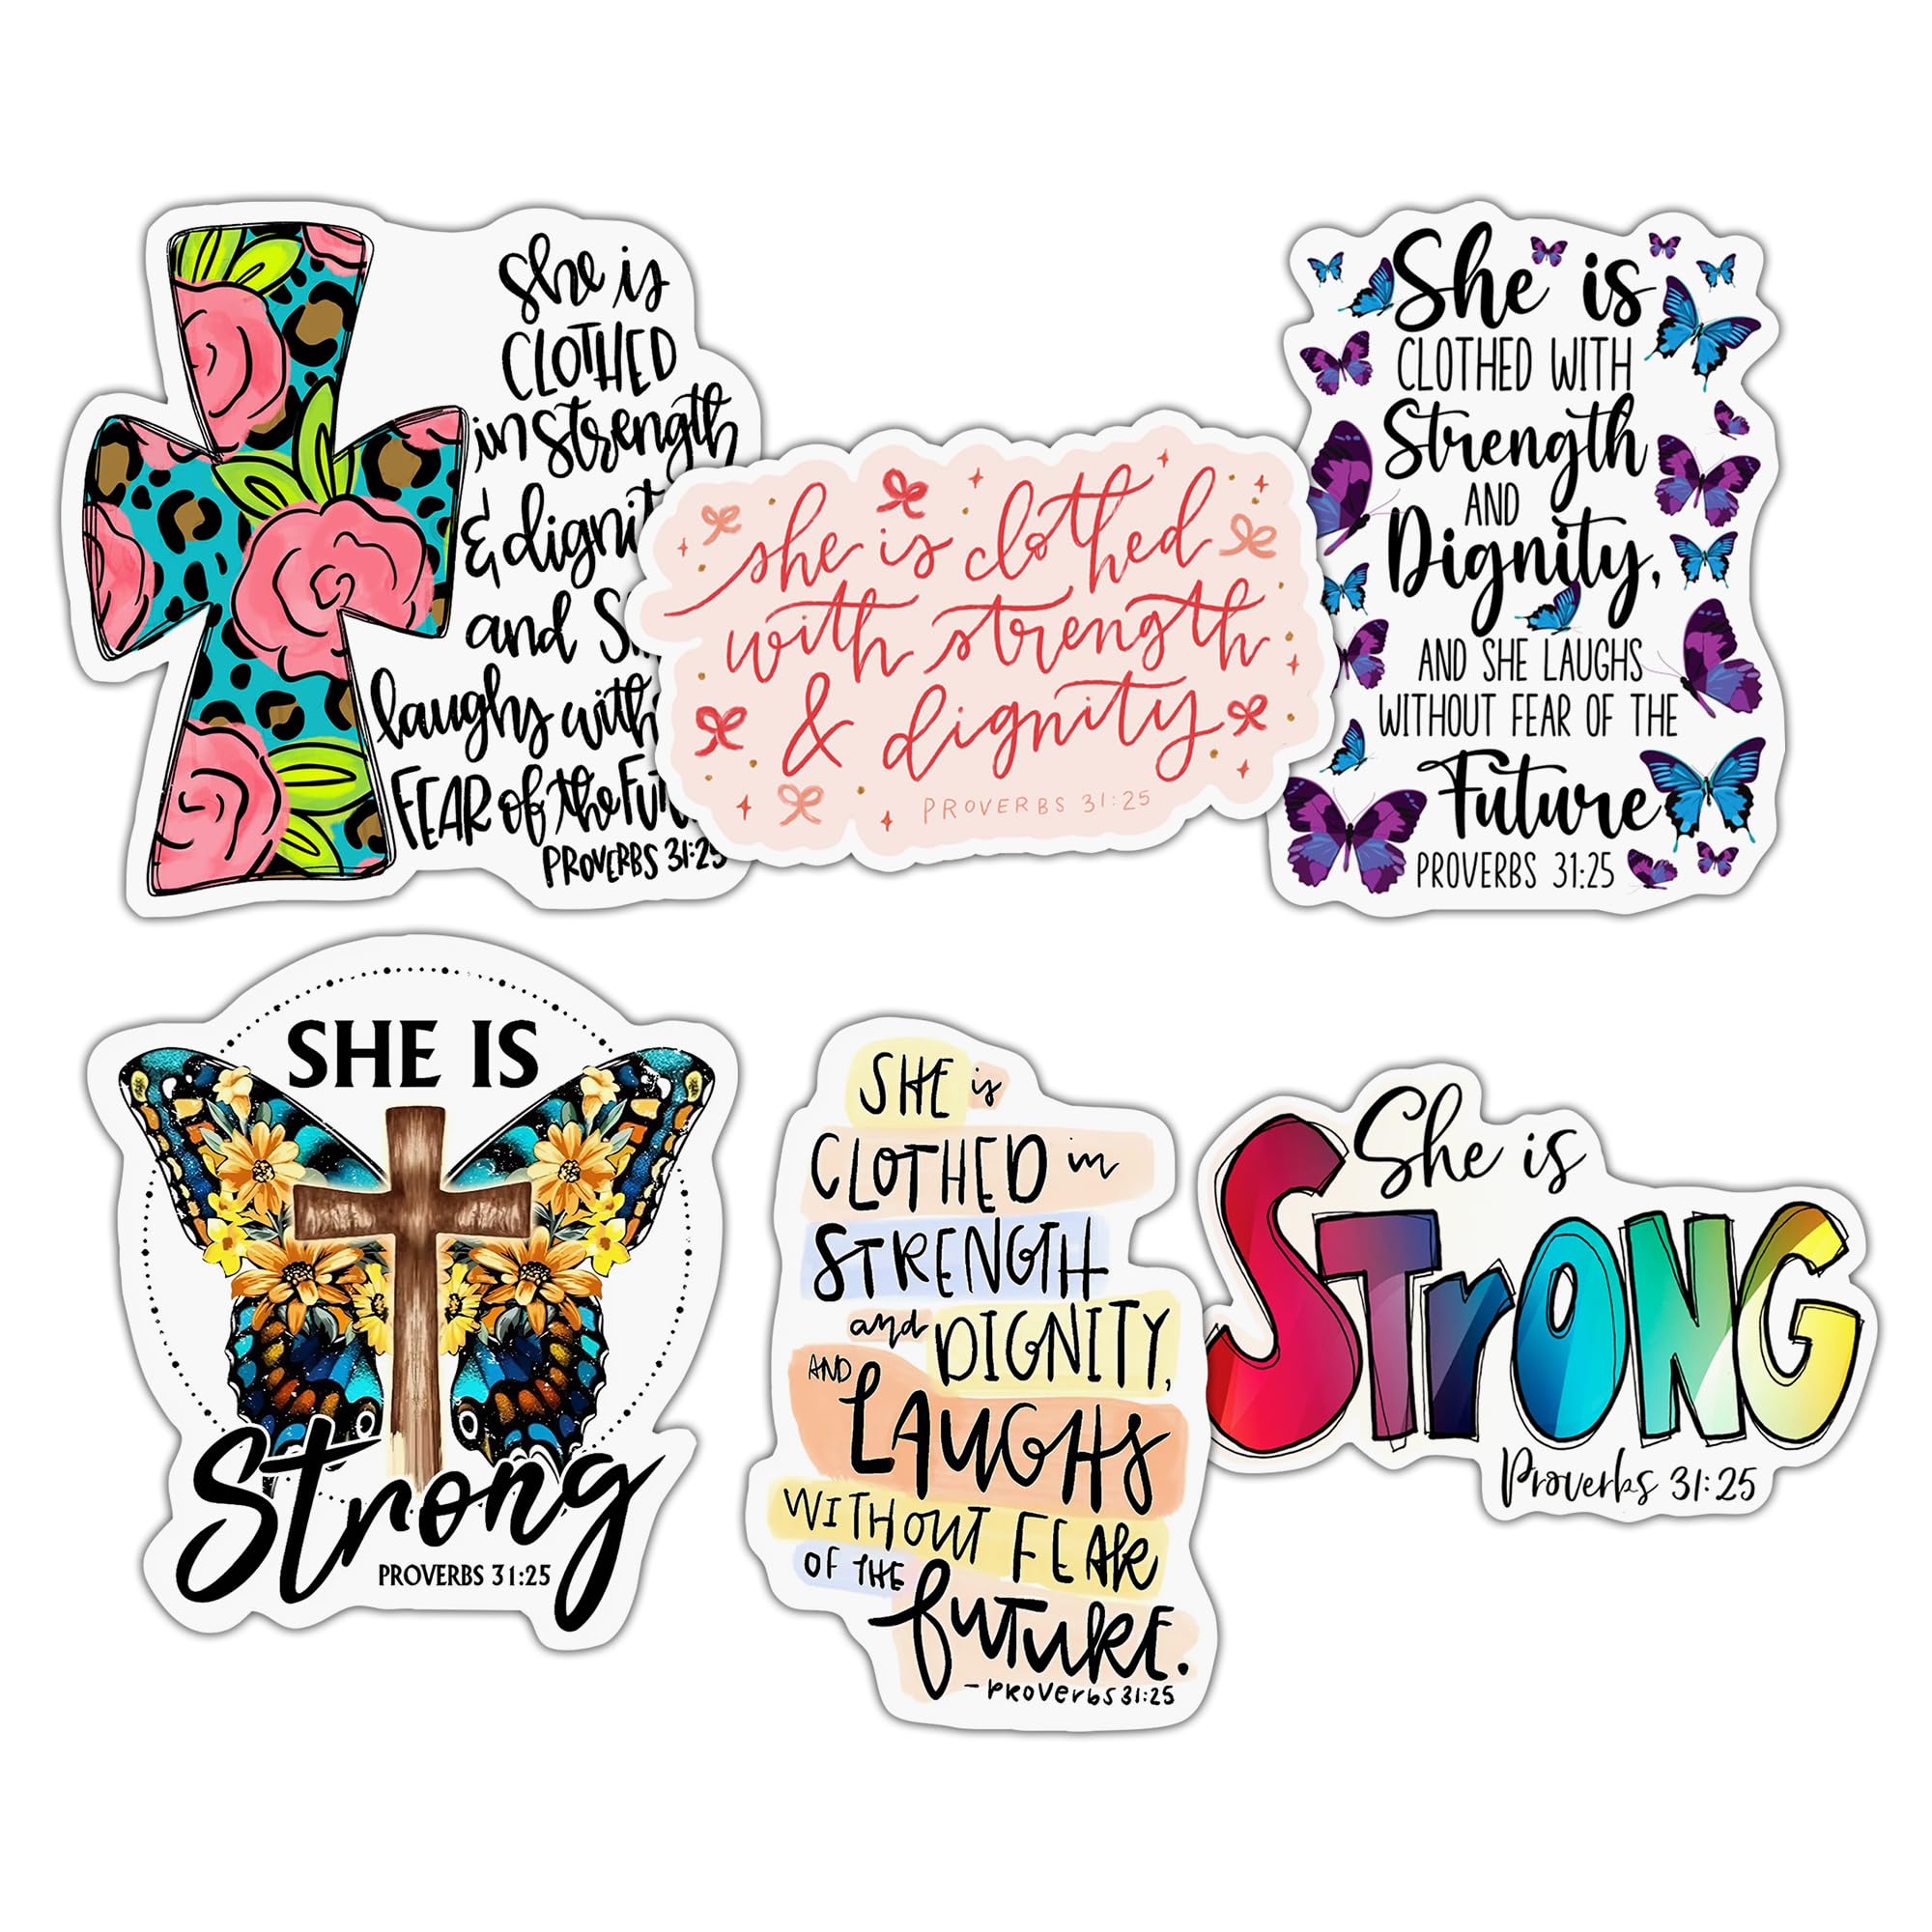 she is
CLOTHED
in strength
& dignit
and
laughs with
FEAR of the Fu
PROVERBS 31:25
she is clothed
with strength
& dignity
PROVERBS 31:25
She is
CLOTHED WITH
Strength
AND
Dignity,
AND SHE LAUGHS
WITHOUT FEAR OF THE
Future
PROVERBS 31:25
SHE IS
Strong
PROVERBS 31:25
SHE is
CLOTHED in
STRENGTH
and DIGNITY,
AND LAUGHS
WITHOUT FEAR
OF THE
future.
- PROVERBS 31:25
She is
STrONG
Proverbs 31:25